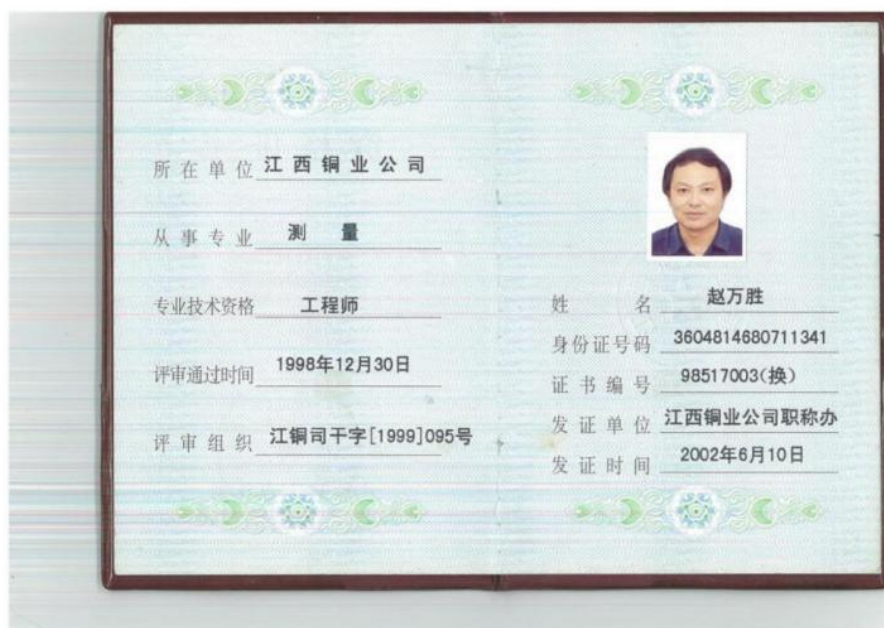 所在单位 江西铜业公司
从事专业 测 量
专业技术资格 工程师
评审通过时间 1998年12月30日
评审组织 江铜司干字[1999]095号
姓 名 赵万胜
身份证号码 3604814680711341
证书编号 98517003(换)
发证单位 江西铜业公司职称办
发证时间 2002年6月10日